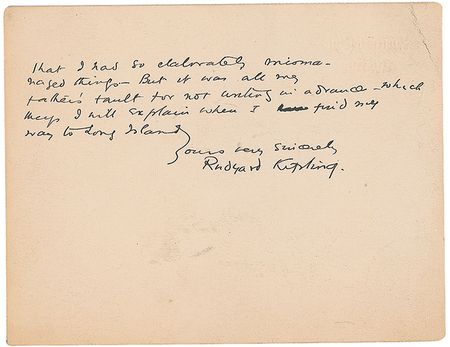 that I had so elaborately misma-
naged things - But it was all my
father's fault for not writing in advance - which
I will explain when I find my
way to Long Island
Yours very sincerely
Rudyard Kipling.